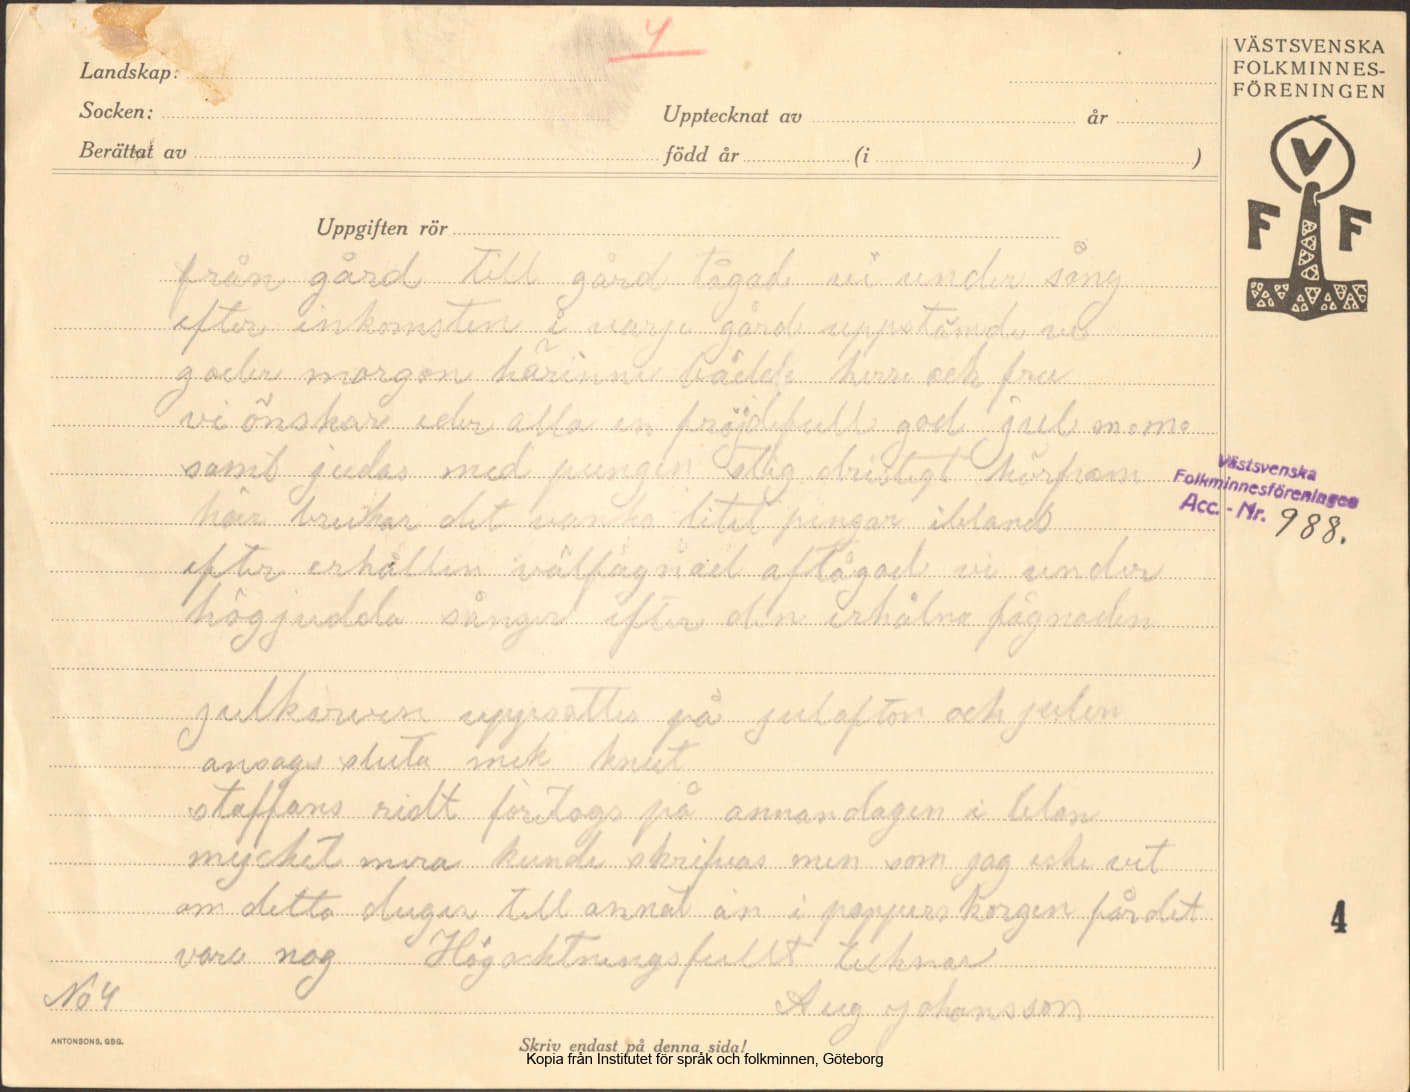 4
Landskap:
Socken:
Upptecknat av
år
Berättat av
född år
(i
)
VÄSTSVENSKA
FOLKMINNES-
FÖRENINGEN
V
F F
Uppgiften rör
från gård till gård tågade vi under sång
efter inkomsten i varje gård uppstämde vi
goder morgon härinne både herre och fru
vi önskar eder alla en fröjdefull god jul m.m.
samt judas med pungen stig dristigt härfram
här brukar det vanka litet pengar ibland
efter erhållen välfägnad aftågade vi under
högjudda sånger efter den erhålna fägnaden
Västsvenska
Folkminnesföreningen
Acc. - Nr. 988.
julkärven uppsattes på julafton och julen
ansags sluta mek knut
staffans ridt företogs på annandagen i blan
mycket mera kunde skrifvas men som jag icke vet
om detta duger till annat än i papperskorgen får det
vara nog Högachtningsfullt tecknar
4
No 4
Aug Johansson
ANTONSONS, GBG.
Skriv endast på denna sida!
Kopia från Institutet för språk och folkminnen, Göteborg